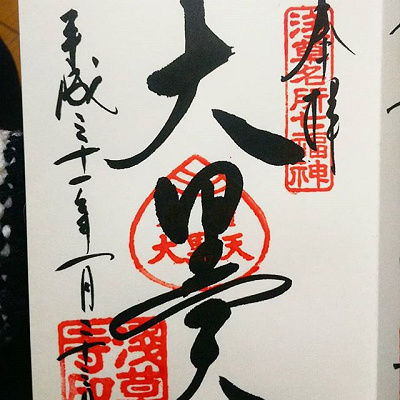 奉拝
浅草名所七福神
大黒天
大黒天
平成三十一年一月二十三
浅草
寺印